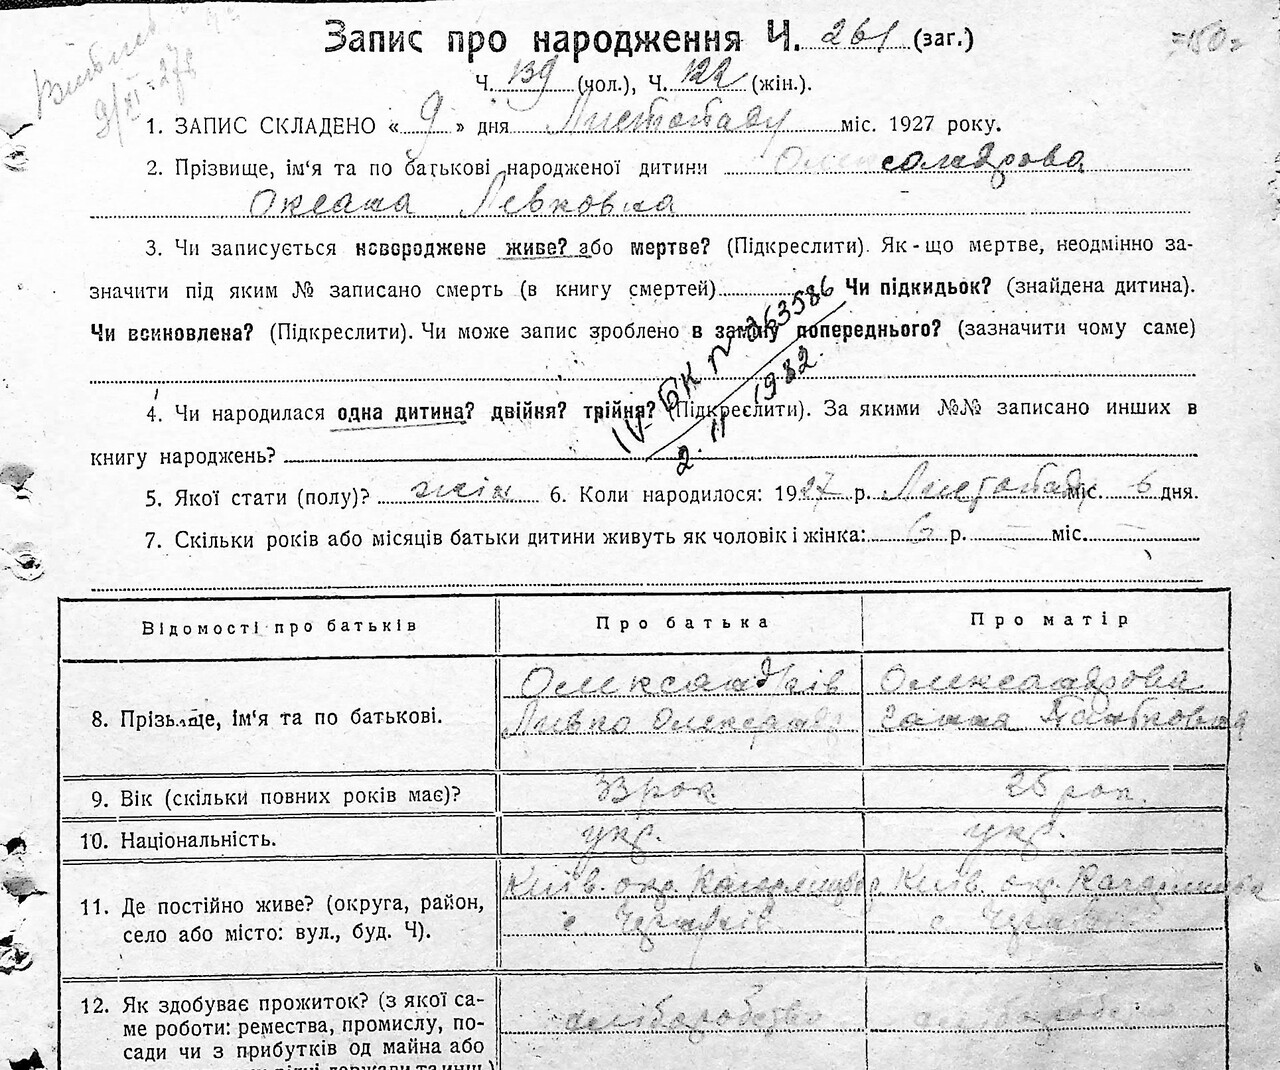 Запис про народження Ч. 261 (заг.)
=150=
Ч. 139 (чол.), Ч. 122 (жін.).
1. ЗАПИС СКЛАДЕНО «9» дня Листопаду міс. 1927 року.
2. Прізвище, ім'я та по батькові народженої дитини Олександрова
Оксана Левковна
3. Чи записується новороджене живе? або мертве? (Підкреслити). Як-що мертве, неодмінно за-
значити під яким № записано смерть (в книгу смертей) Чи підкидьок? (знайдена дитина).
Чи всиновлена? (Підкреслити). Чи може запис зроблено в заміну попереднього? (зазначити чому саме)
IV-БК № 263586
2. II 1982.
4. Чи народилася одна дитина? двійня? трійня? (Підкреслити). За якими №№ записано инших в
книгу народжень?
5. Якої стати (полу)? жін 6. Коли народилося: 1927 р. Листопаду міс. 6 дня.
7. Скільки років або місяців батьки дитини живуть як чоловік і жінка: 6 р. — міс. —
Відомості про батьків Про батька Про матір
8. Прізвище, ім'я та по батькові.
Олександрів
Левко Олександр
Олександрова
Ганна
9. Вік (скільки повних років має)? 33 рок 25 рок.
10. Національність. укр. укр.
11. Де постійно живе? (округа, район,
село або місто: вул., буд. Ч).
Київ. окр. Кагарлицьк р
с.
Київ. окр. Кагарлицьк
с.
12. Як здобуває прожиток? (з якої са-
ме роботи: ремества, промислу, по-
сади чи з прибутків од майна або
хліборобство хліборобство